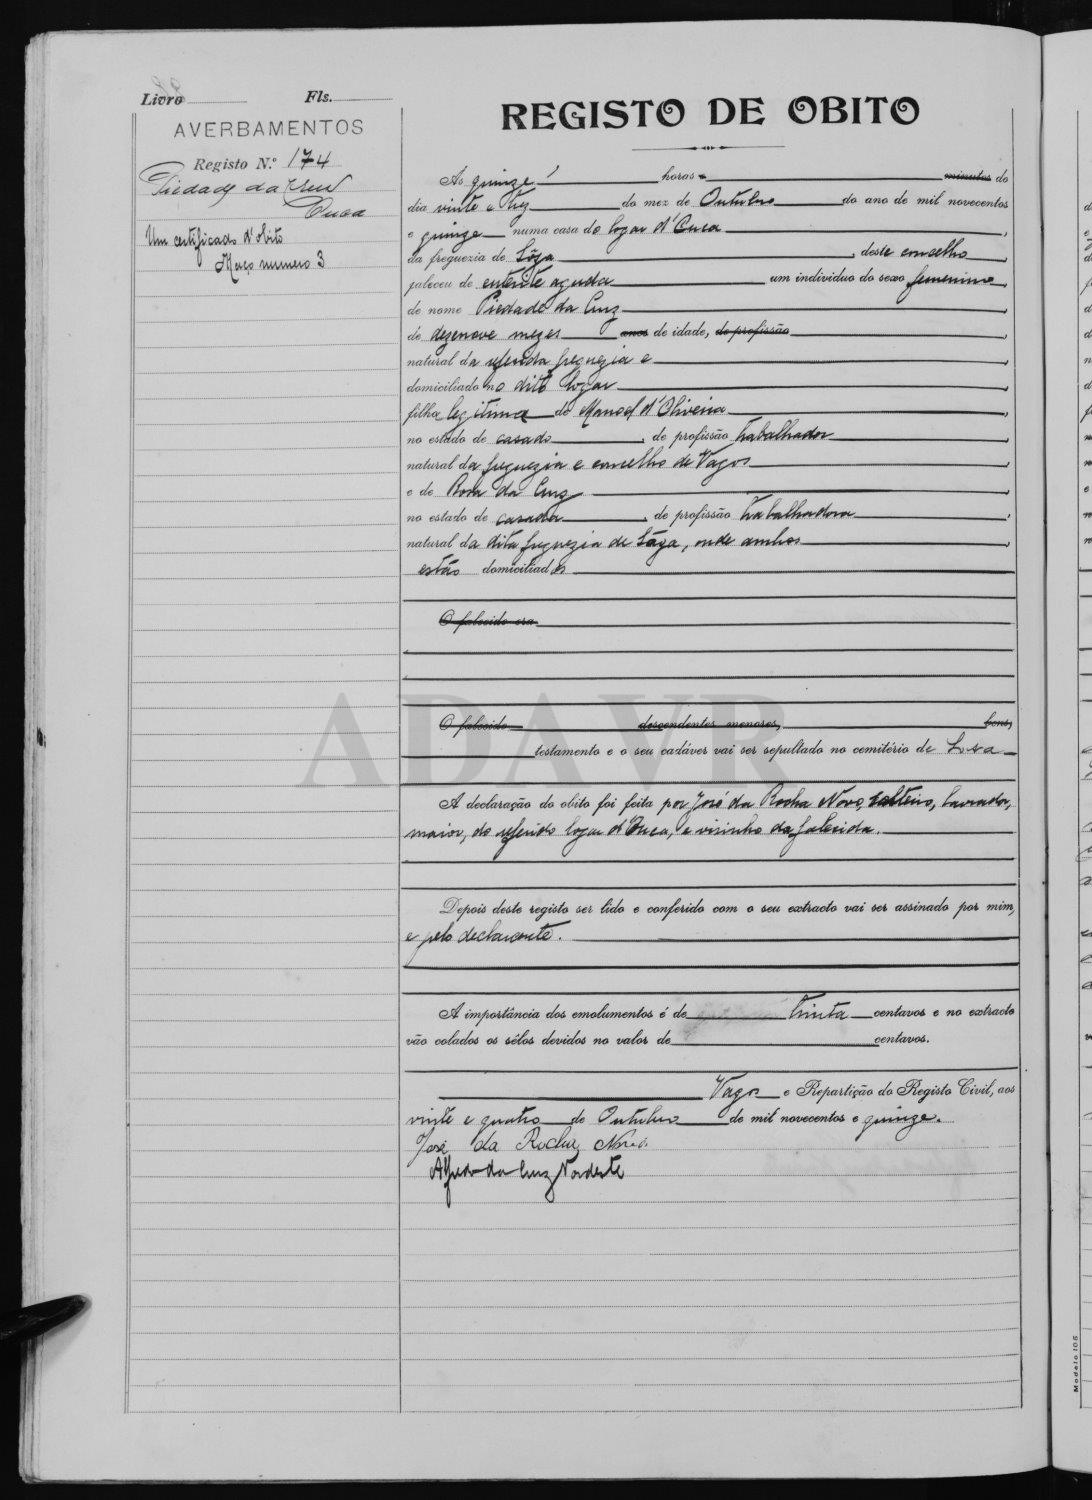 Livro Fls.
AVERBAMENTOS
Registo N.º 174
Piedade da Cruz
Um certificado d'obito
Maço numero 3
REGISTO DE OBITO
Ás quinze horas e minutos do
dia vinte e trez do mez de Outubro do ano de mil novecentos
e quinze numa casa do logar d'
da freguezia de Sôza, deste concelho,
faleceu de enterite aguda um individuo do sexo femenino,
de nome Piedade da Cruz,
de dezenove mezes anos de idade, de profissão
natural da referida freguezia e
domiciliado no dito logar,
filha legitima de Manoel d'Oliveira,
no estado de casado, de profissão trabalhador,
natural da freguezia e concelho de Vagos,
e de Rosa da Cruz,
no estado de casada, de profissão trabalhadora,
natural da dita freguezia de Sôza, onde ambos
estão domiciliados
O falecido era
ADAVR
O falecido descendentes menores, bens,
testamento e o seu cadáver vai ser sepultado no cemitério de Soza
A declaração do obito foi feita por José da Rocha Novo, solteiro, lavrador,
maior, do referido logar d' e visinho da falecida.
Depois deste registo ser lido e conferido com o seu extracto vai ser assinado por mim,
e pelo declarante.
A importância dos emolumentos é de trinta centavos e no extracto
vão colados os sêlos devidos no valor de centavos.
Vagos e Repartição do Registo Civil, aos
vinte e quatro de Outubro de mil novecentos e quinze.
José da Rocha Novo
Alfredo da Cruz Nordeste
Modelo 105